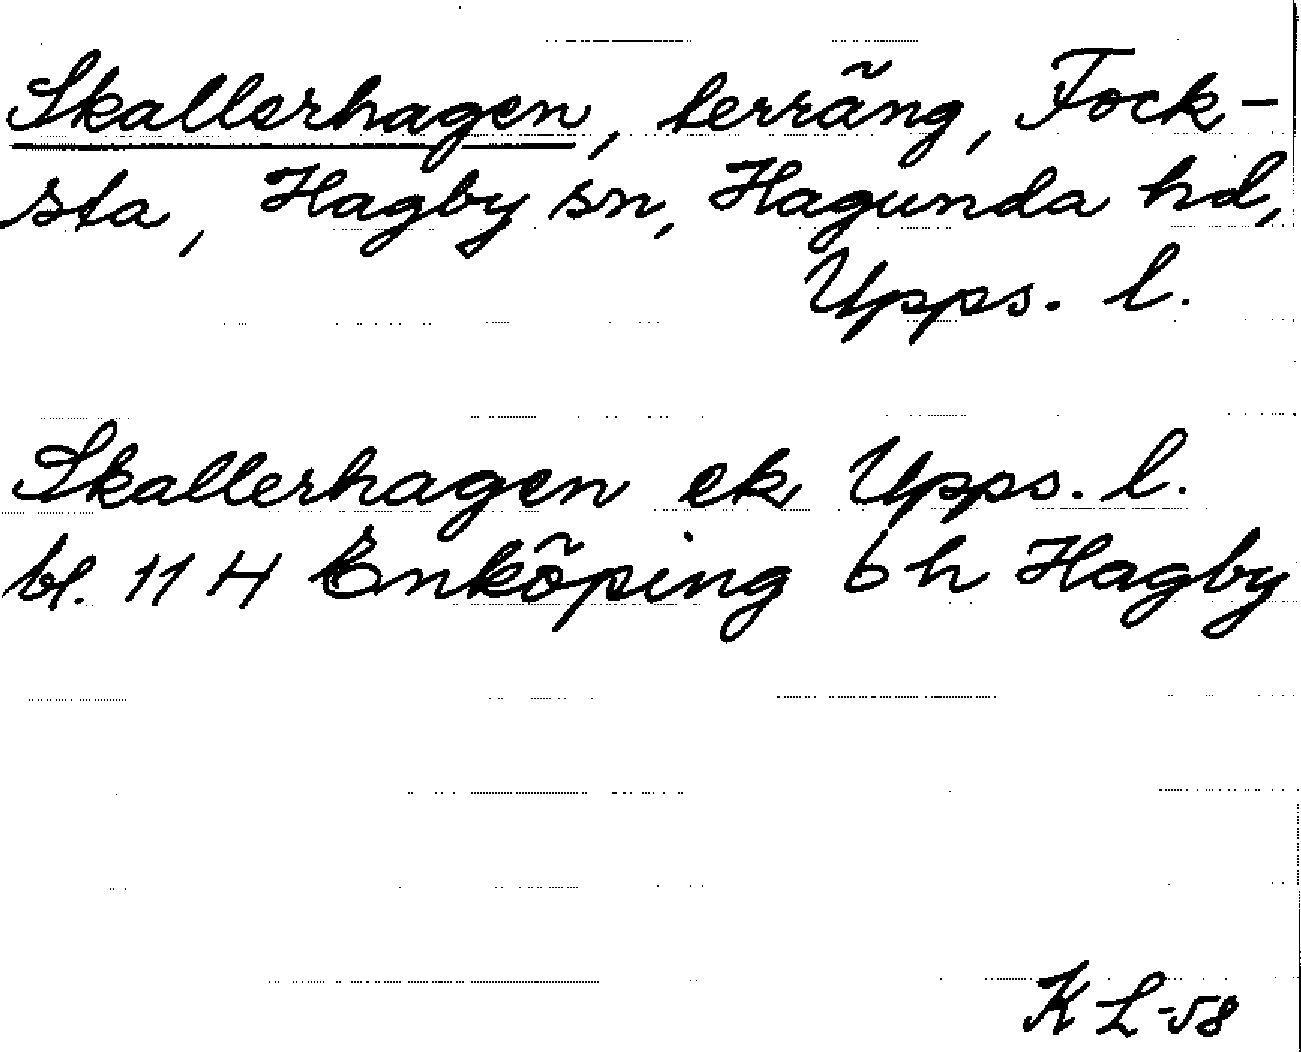 Skallerhagen, terräng, Fock-
sta, Hagby sn, Hagunda hd,
Upps. l.
Skallerhagen ek Upps. l.
bl. 11 H Enköping 6 h Hagby
K L-58